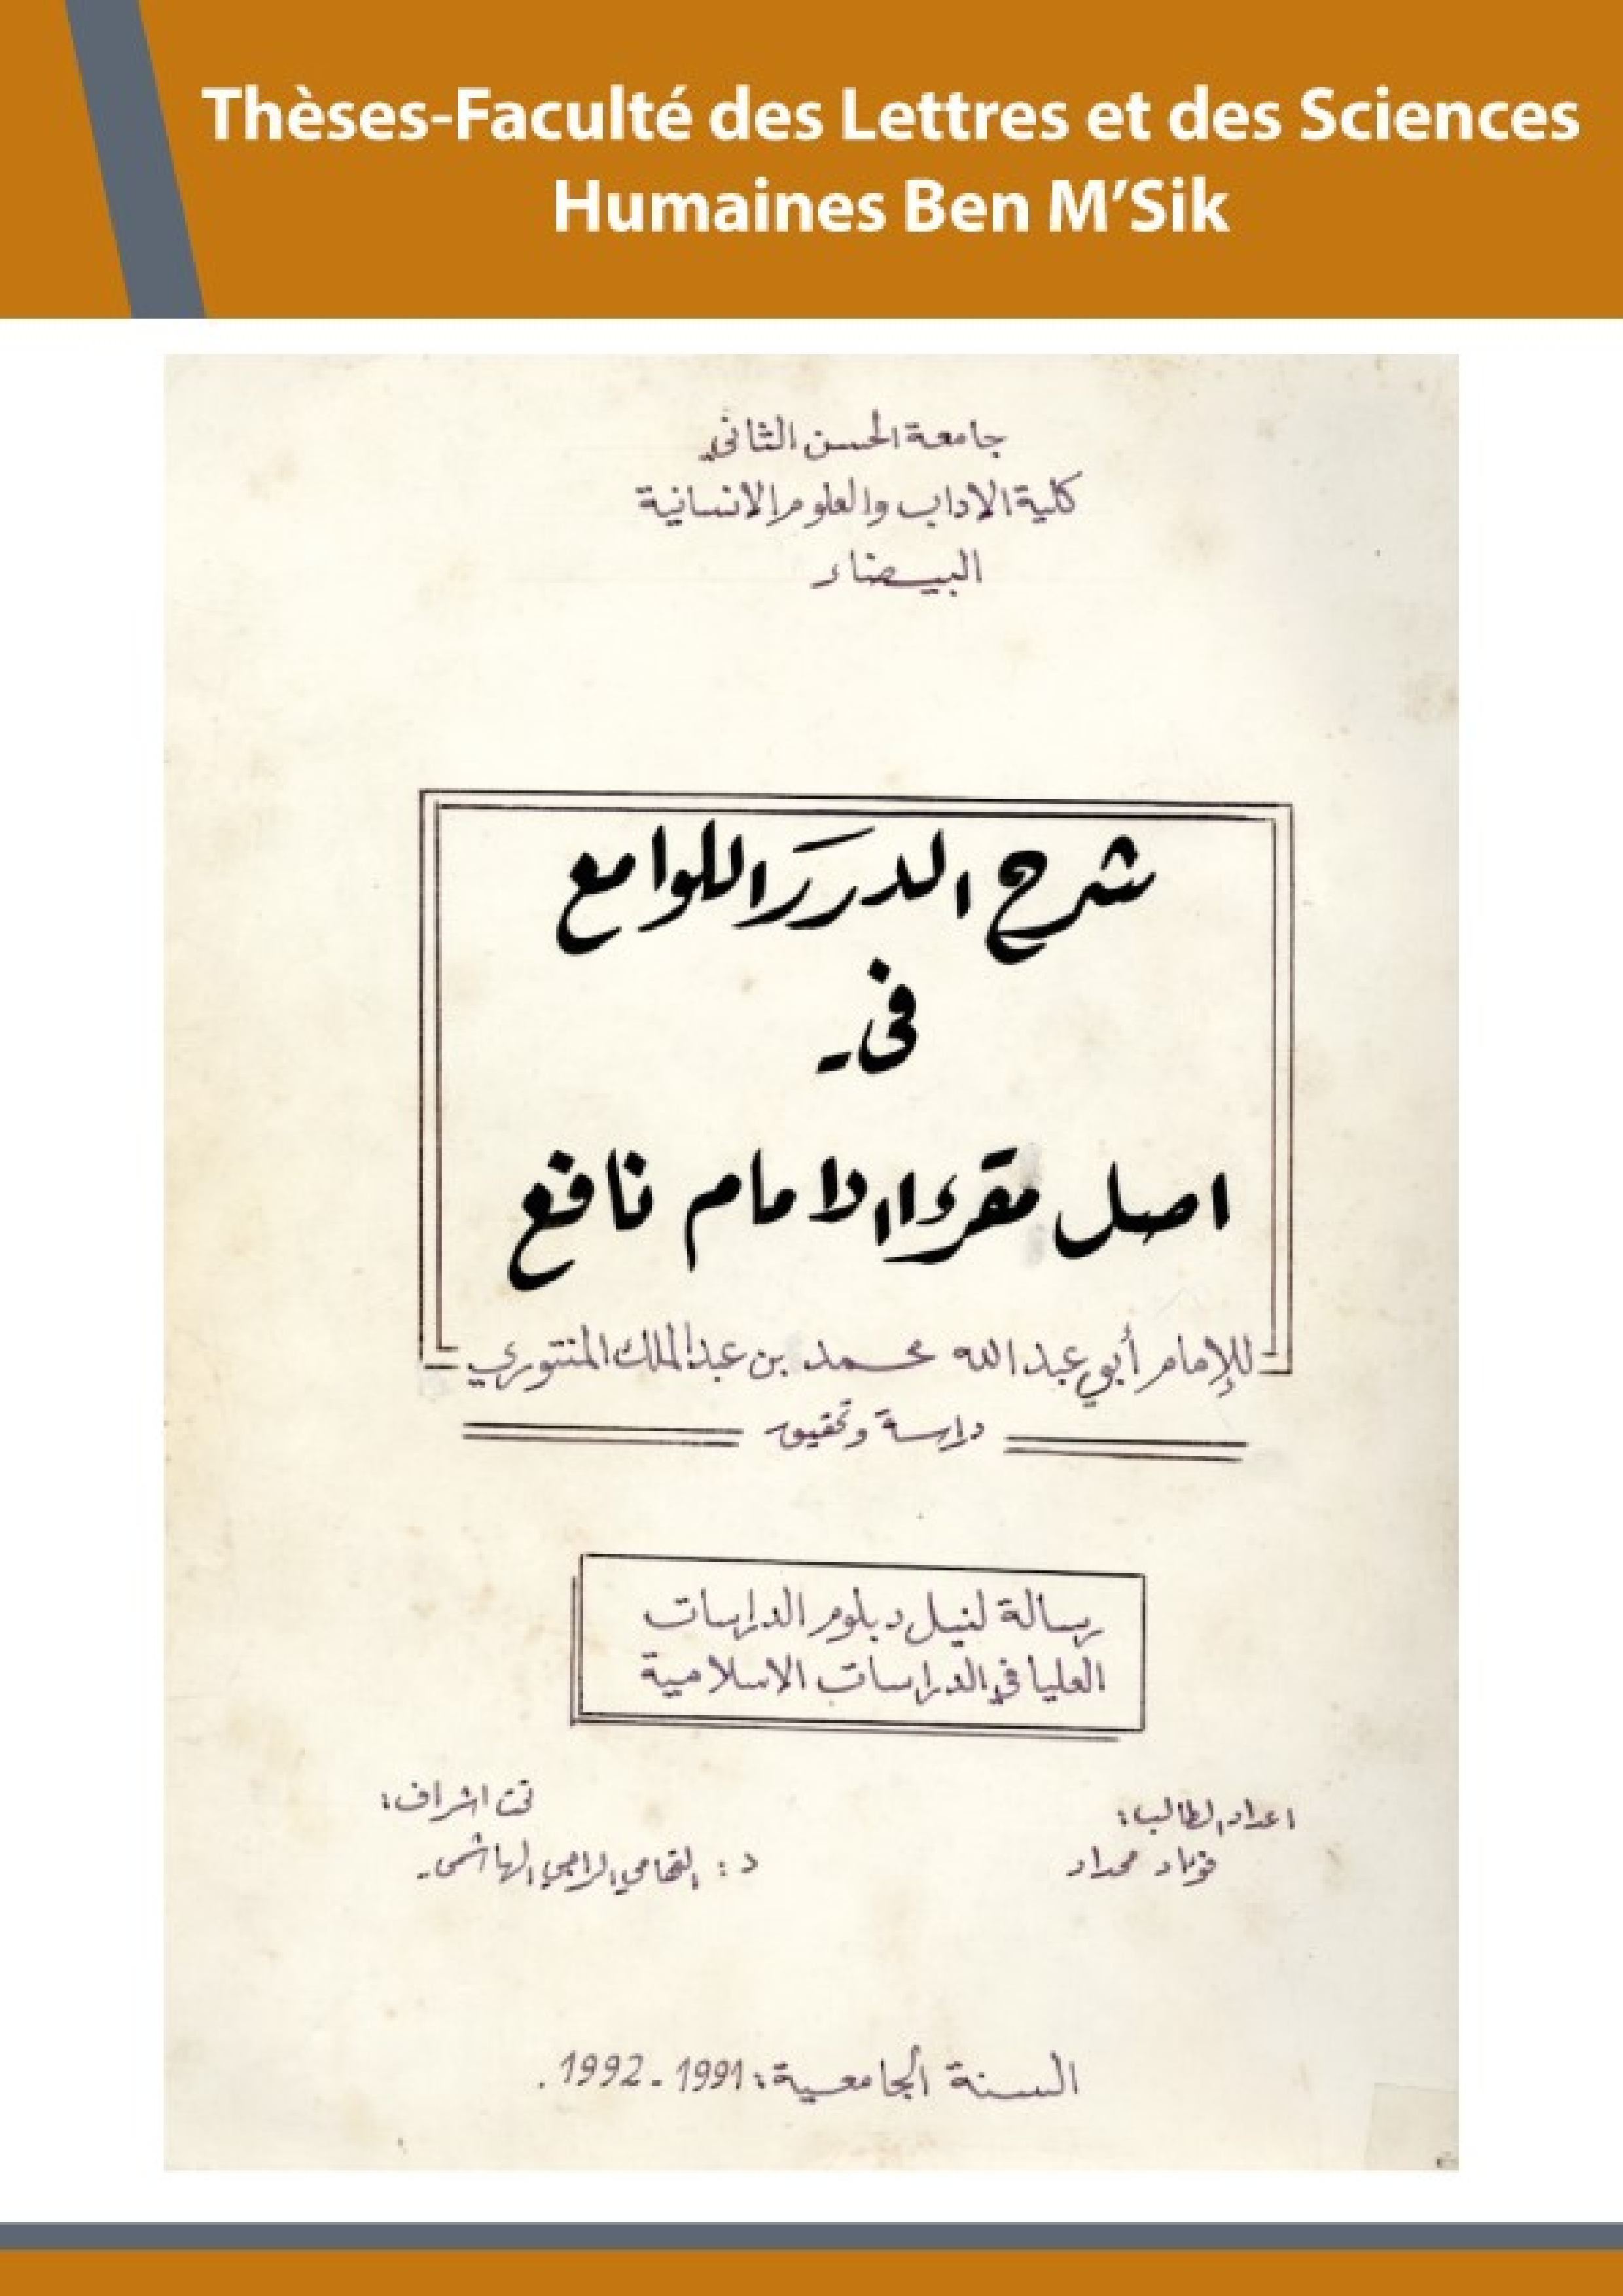 Thèses-Faculté des Lettres et des Sciences
Humaines Ben M'Sik
جامعة الحسن الثاني
كلية الاداب والعلوم الانسانية
البيضاء
شرح الدرر اللوامع
في
اصل مقرء الامام نافع
للإمام أبي عبد الله محمد بن عبد الملك المنتوري
دراسة وتحقيق
رسالة لنيل دبلوم الدراسات
العليا في الدراسات الاسلامية
اعداد الطالب:
تحت اشراف:
فؤاد محداد
د: التهامي الراجي الهاشمي.
السنة الجامعية: 1991 - 1992.